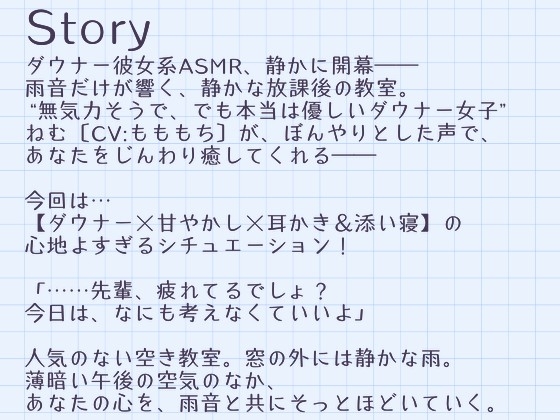 Story
ダウナー彼女系ASMR、静かに開幕───
雨音だけが響く、静かな放課後の教室。
“無気力そうで、でも本当は優しいダウナー女子”
ねむ［CV:もももち］が、ぼんやりとした声で、
あなたをじんわり癒してくれる───
今回は…
【ダウナー×甘やかし×耳かき＆添い寝】の
心地よすぎるシチュエーション！
「……先輩、疲れてるでしょ？
今日は、なにも考えなくていいよ」
人気のない空き教室。窓の外には静かな雨。
薄暗い午後の空気のなか、
あなたの心を、雨音と共にそっとほどいていく。